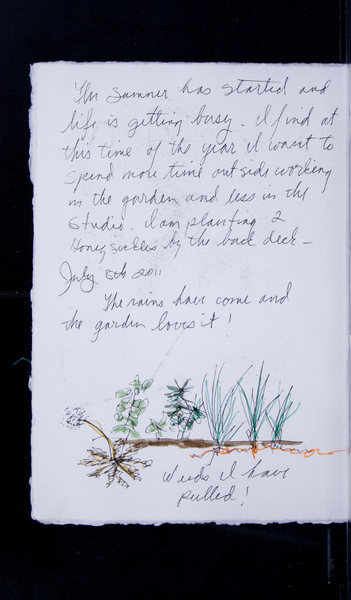 The Summer has started and
life is getting busy. I find at
this time of the year I want to
spend more time outside working
in the garden and less in the
Studio. I am planting 2
Honeysickles by the back deck -
July 5th 2011
The rains have come and
the garden loves it!
Weeds I have
pulled!